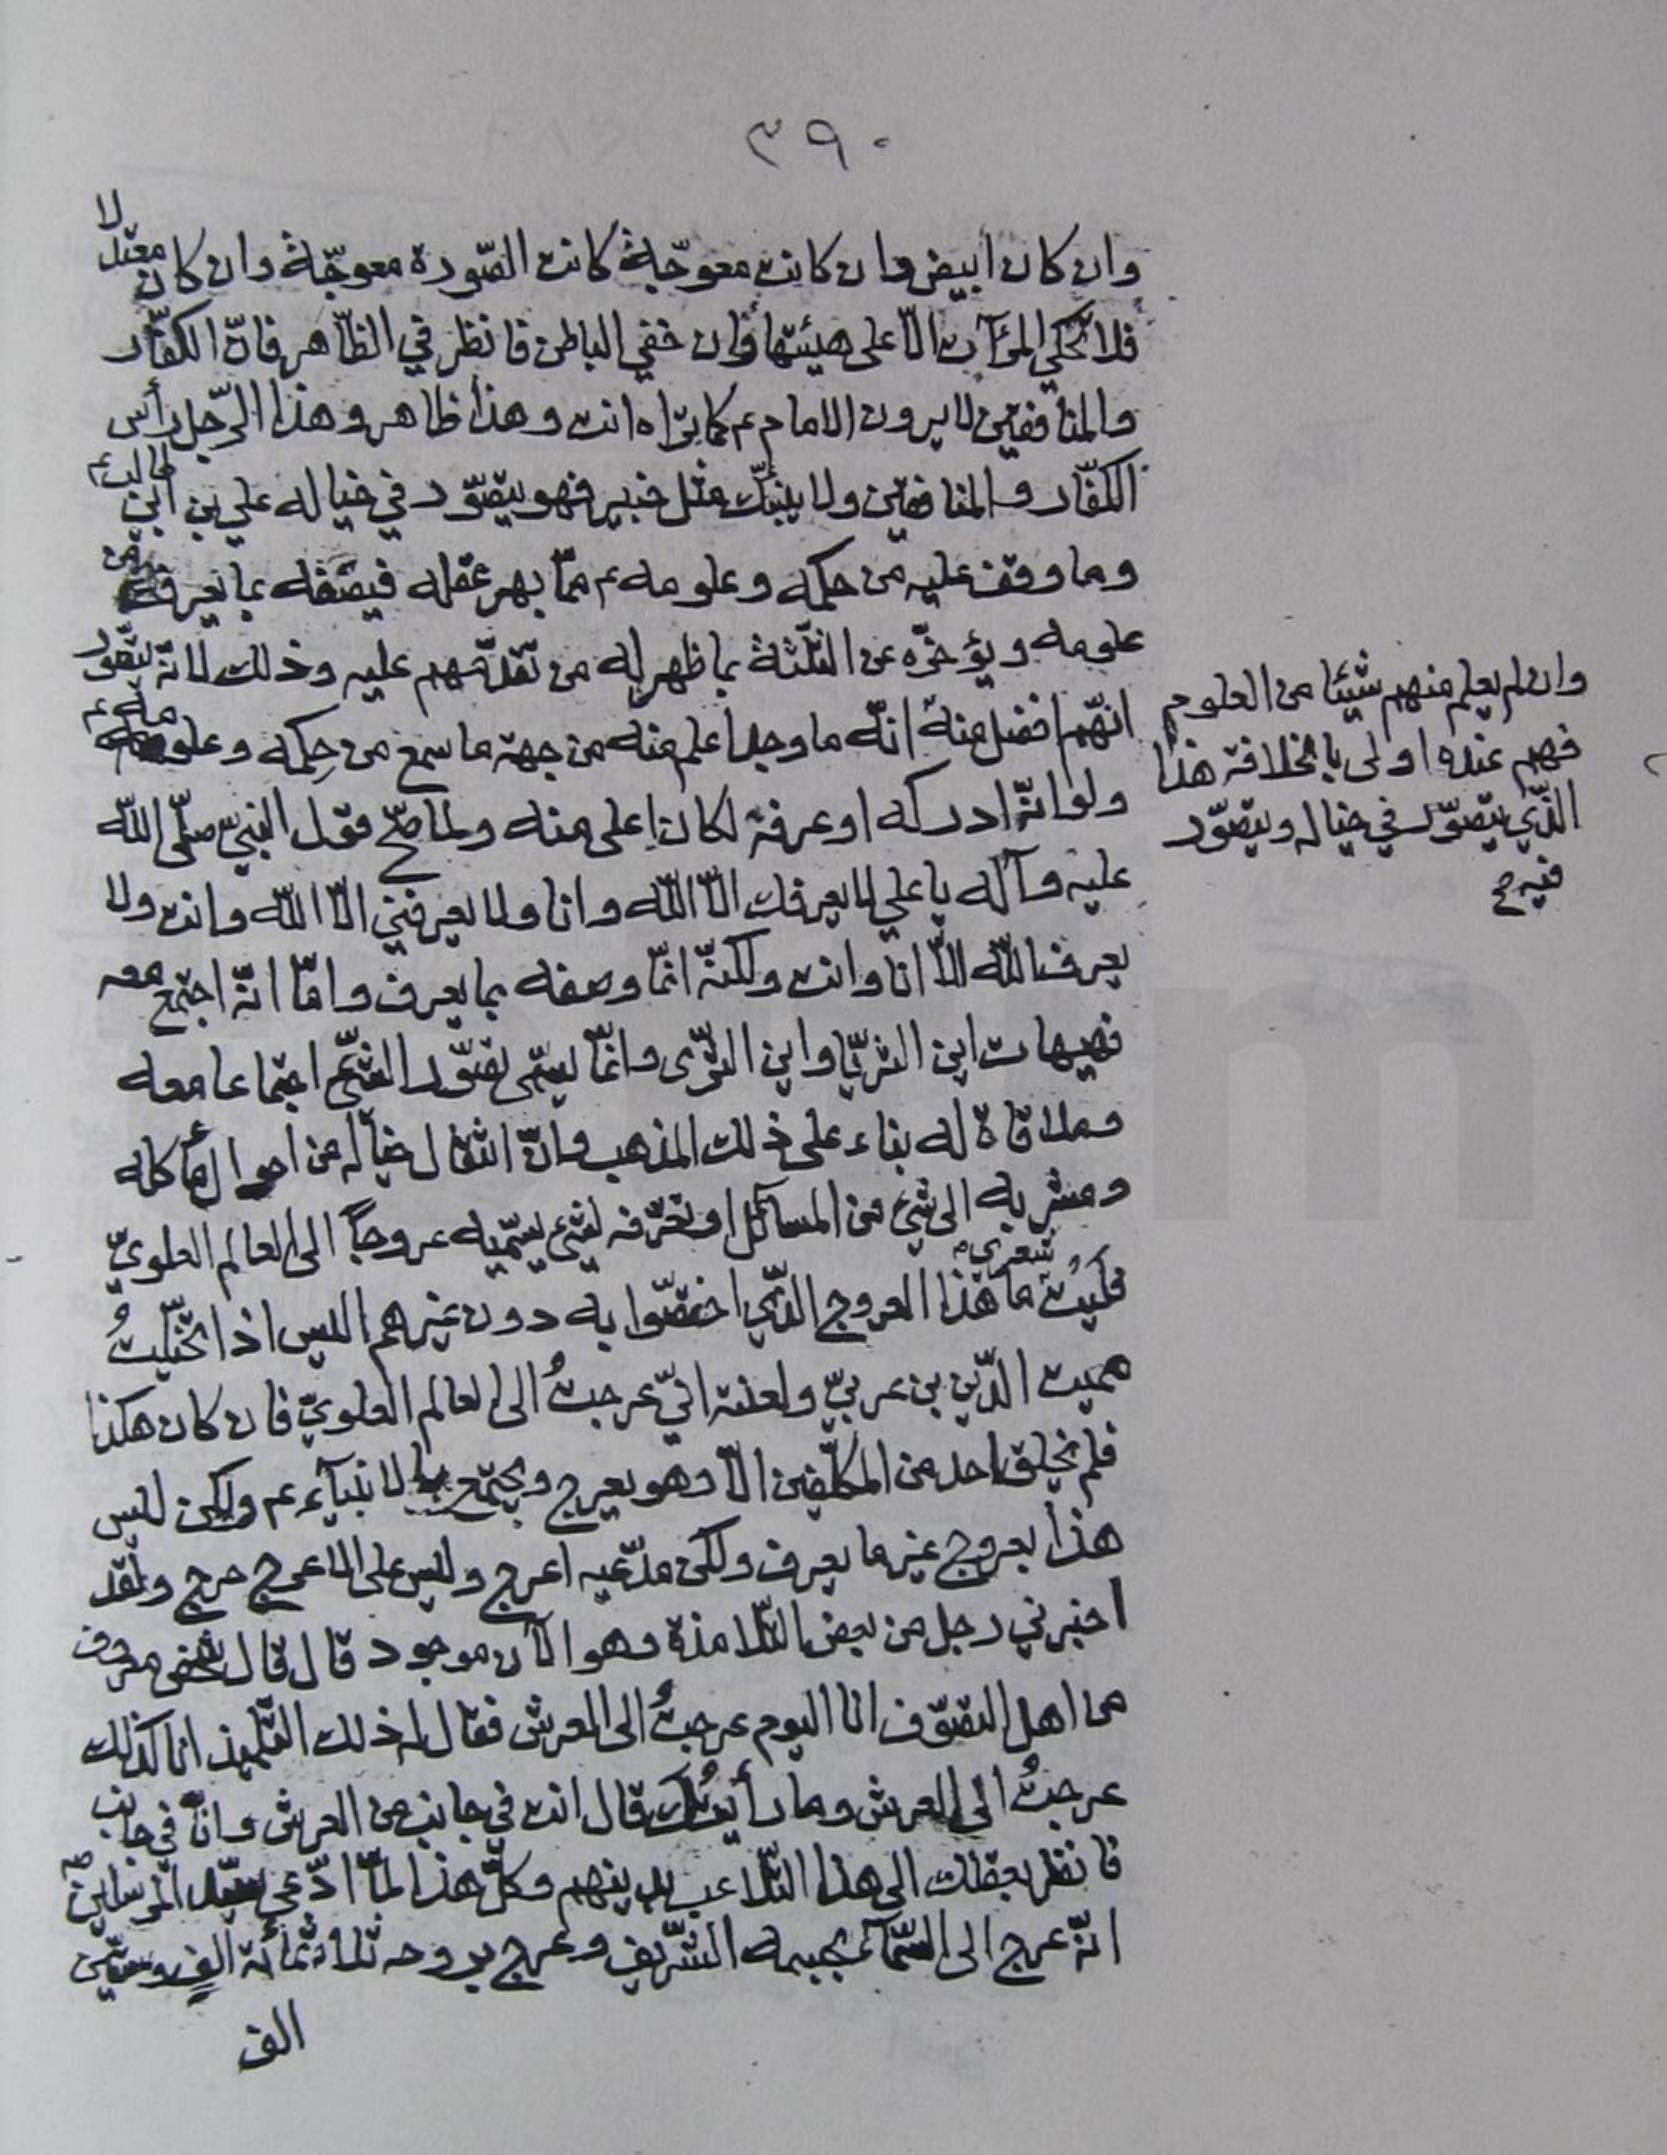 ٣٩٠
وان كان ابيض وان كانت معوجّة كانت الصّورة معوجّة وان كان معتدلا
فلا تحكي المرآت الّا على هيئتها وان خفي الباطن فانظر في الظّاهر فانّ الكفّار
والمنافقين لا يرون الامام ع كما تراه انت وهذا ظاهر وهذا الرّجل رأس
الكفّار والمنافقين ولا ينبّئك مثل خبير فهو يتصّور في خياله علي بن ابي طالب ع
وما وقف عليه من حكمه وعلومه ع ممّا بهر عقله فيصفه بما يعرفه من
علومه ويؤخّره عن الثلثة بما ظهر له من تقدّمهم عليه وذلك لانّه يتصّور
انهّم افضل منه انّه ما وجد اعلم منه من جهة ما سمع من حِكمه وعلومه ع
ولو انّه ادركه او عرفه لكان اعلى منه ولما صحّ قول النبيّ صلّى اللّه
عليه وآله يا علي لا يعرفك الّا اللّه وانا ولا يعرفني الّا اللّه وانت ولا
يعرف اللّه الّا انا وانت ولكنّه انمّا وصفه بما يعرف وامّا انّه اجتمع معه
فهيهات اين الثريّا واين الثّرى وانمّا يسمّى تصّور الشّيء اجتماعا معه
وملاقاة له بناء على ذلك المذهب وانّ انتقال خياله من احوال مأكله
ومشربه الى شيء من المسائل او تعرّفه لشيء يسمّيه عروجاً الى العالم العلويّ
فليت شعري ما هذا العروج الذّي اختصّوا به دون غيرهم اليس اذا تخيّلتُ
مميت الدّين بن عربيّ ولعنته انيّ عرجتُ الى العالم العلويّ فان كان هكذا
فلم يخلق احد من المكلّفين الّا وهو يعرج ويجتمع بالانبيآء ع م ولكن ليس
هذا بعروج غير ما يعرف ولكن مدّعيه اعرج وليس على الاعرج حرج ولقد
اخبرني رجل من بعض التّلامذة وهو الآن موجود قال قال شخص معروف
من اهل التصّوف انا اليوم عرجتُ الى العرش فقال له ذلك التّلميذ انا كذلك
عرجتُ الى العرش وما رأيتُك قال انت في جانب من العرش وانا في جانب
فانظر بعقلك الى هذا التّلاعب بدينهم وكلّ هذا لمّا ادّعى سيّد المرسلين ص
انّه عرج الى السّمآء بجسمه الشّريف وعرج بروحه ثلاثمأئة الف وستّين
الف
وان لم يعلم منهم شيئا من العلوم
فهم عنده اولى بالخلافة هذا
الذّي يتصّور في خياله ويتصّور
فيه صح